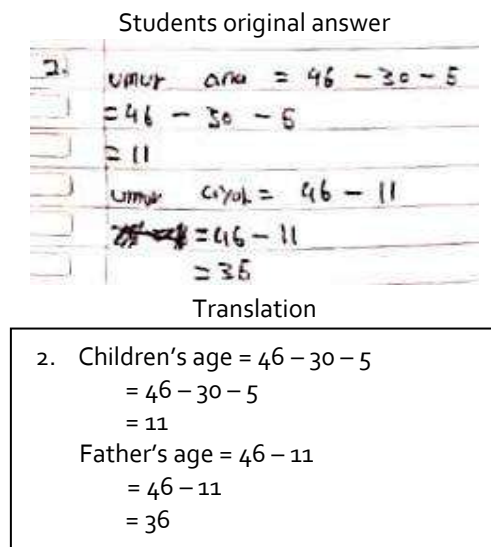 Students original answer
2. umur ana = 46 - 30 - 5
= 46 - 30 - 5
= 11
umur ayah = 46 - 11
= 46 - 11
= 36
Translation
2. Children's age = 46 – 30 – 5
= 46 – 30 – 5
= 11
Father's age = 46 – 11
= 46 – 11
= 36